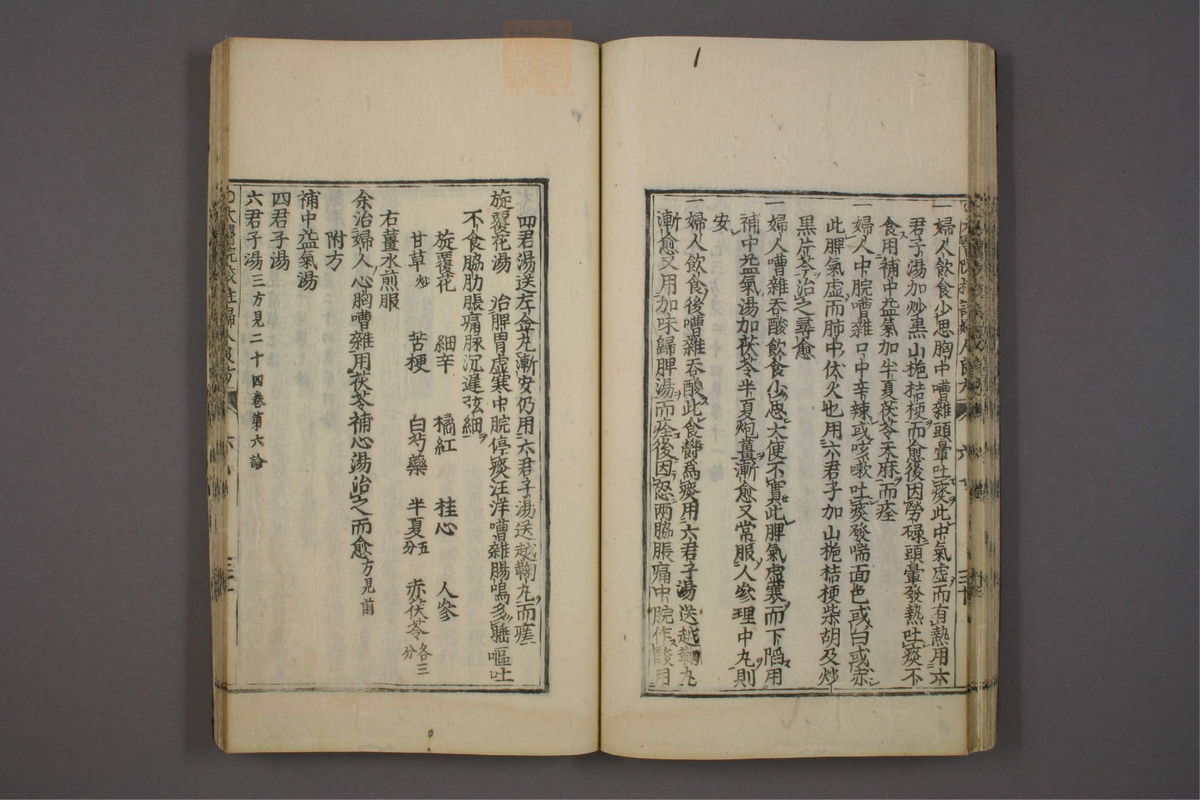 一婦人飲食少思胸中嘈雜頭暈吐痰此中氣虛而有熱用六
君子湯加炒黑山梔桔梗而愈後因勞碌頭暈發熱吐痰不
食用補中益氣加半夏茯苓天麻而痊
一婦人中脘嘈雜口中辛辣或咳嗽吐痰發喘面色或白或赤
此脾氣虛而肺中伏火也用六君子加山梔桔梗柴胡及炒
黑片芩治之尋愈
一婦人嘈雜吞酸飲食少思大便不實此脾氣虛寒而下陷用
補中益氣湯加茯苓半夏炮薑漸愈又常服人參理中丸則
安
一婦人飲食後嘈雜吞酸此食鬱為痰用六君子湯送越鞠丸
漸愈又用加味歸脾湯而痊後因怒兩脇脹痛中脘作酸用
四君湯送左金丸漸安仍用六君子湯送越鞠丸而瘥
旋覆花湯 治脾胃虛寒中脘停痰汪洋嘈雜腸鳴多唾嘔吐
不食脇肋脹痛脉沉遲弦細
旋覆花 細辛 橘紅 桂心 人參
甘草炒 苦梗 白芍藥 半夏五分 赤茯苓各三分
右薑水煎服
余治婦人心胸嘈雜用茯苓補心湯治之而愈方見前
附方
補中益氣湯
四君子湯
六君子湯三方見二十四卷第六論